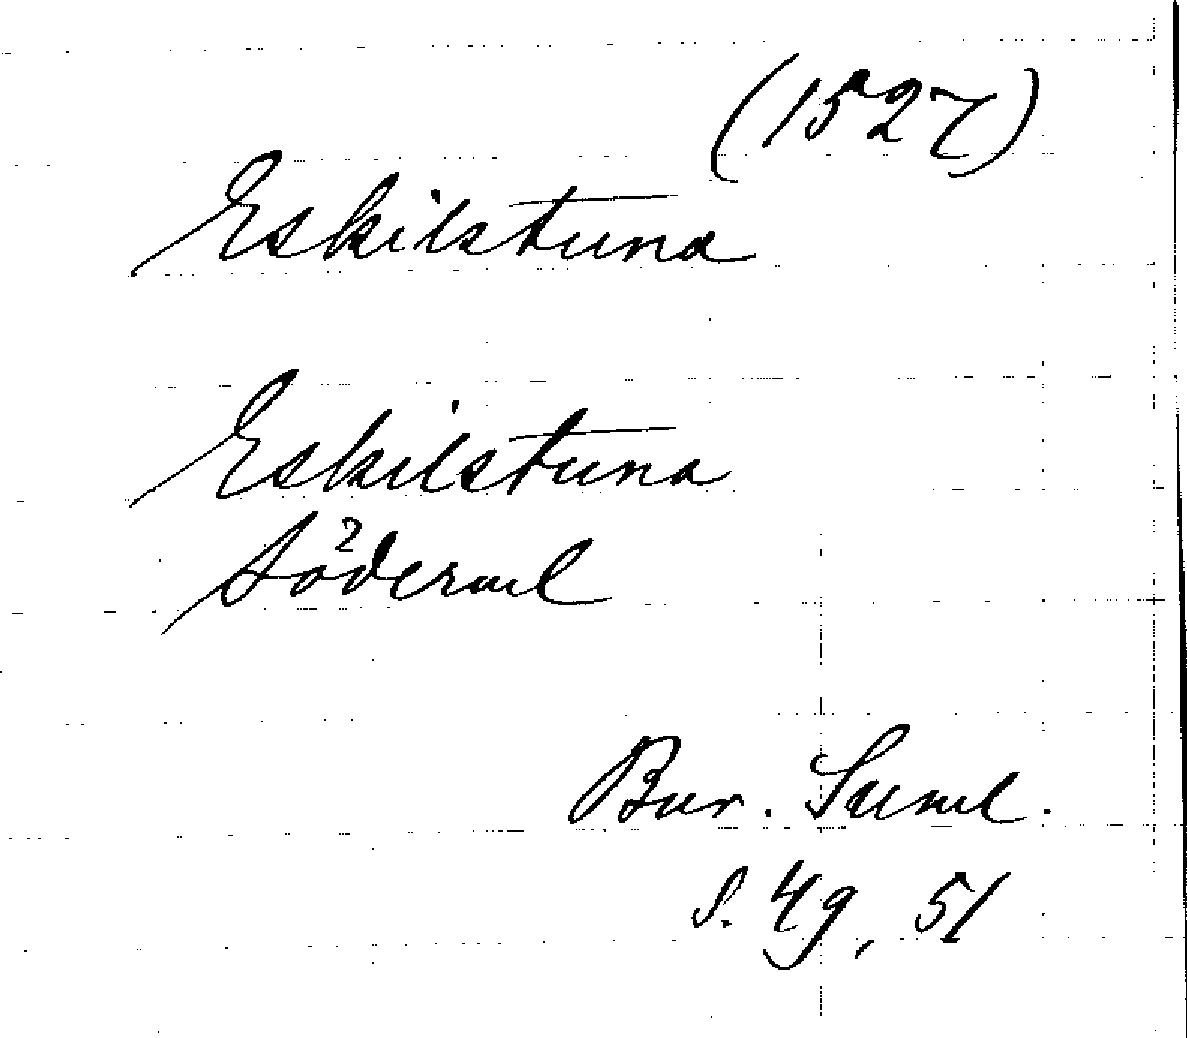 (1527)
Eskilstuna
Eskilstuna
Söderml
Bur. Suml.
s. 49, 51